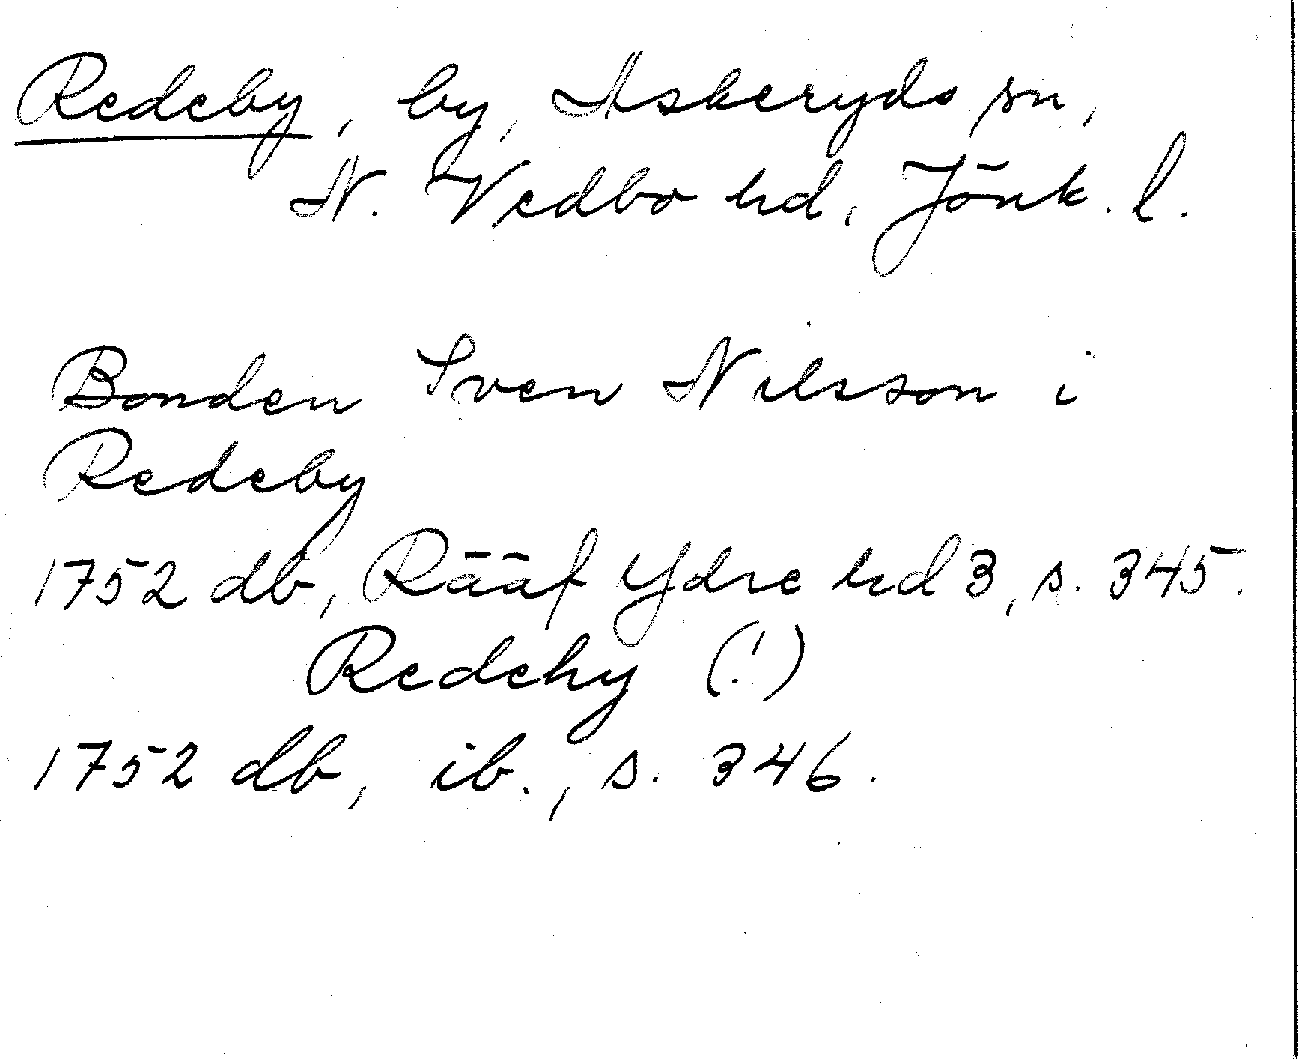 Redeby, by, Askeryds sn,
N. Vedbo hd, Jönk. l.
Bonden Sven Nilsson i
Redeby
1752 db, Rääf Ydre hd 3, s. 345.
Redehy (!)
1752 db, ib., s. 346.